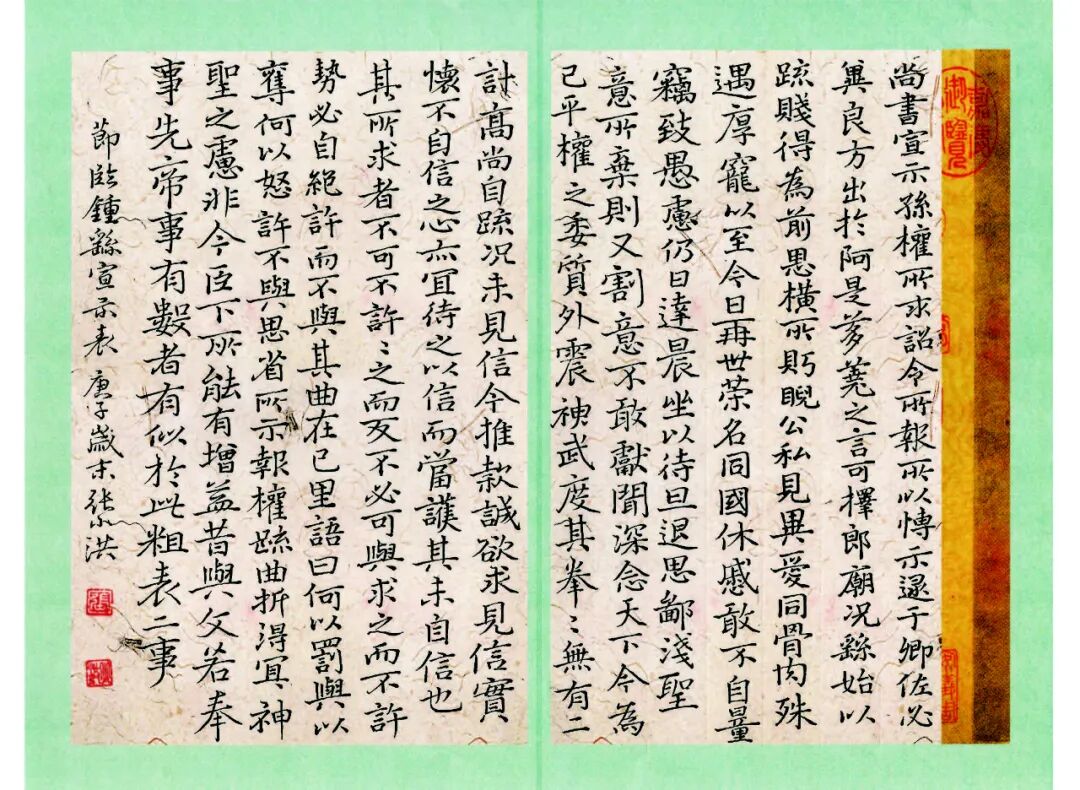 嘉慶御覽
尚書宣示孫權所求詔令所報所以博示逮于卿佐必
異良方出於阿是芻蕘之言可擇郎廟况繇始以
疏賤得為前恩橫所眄睨公私見異愛同骨肉殊
遇厚寵以至今日再世荣名同國休慼敢不自量
竊致愚慮仍日達晨坐以待旦退思鄙淺聖
意所棄則又割意不敢獻聞深念天下今為
已平權之委質外震神武度其拳〻無有二
計高尚自疏况未見信今推款誠欲求見信實
懷不自信之心亦宜待之以信而當護其未自信也
其所求者不可不許〻之而反不必可與求之而不許
勢必自絕許而不與其曲在己里語曰何以罰與以
奪何以怒許不與思省所示報權疏曲折得宜神
聖之慮非今臣下所能有增益昔與文若奉
事先帝事有數者有似於此粗表二事
節臨鍾繇宣示表 庚子歲末張洪